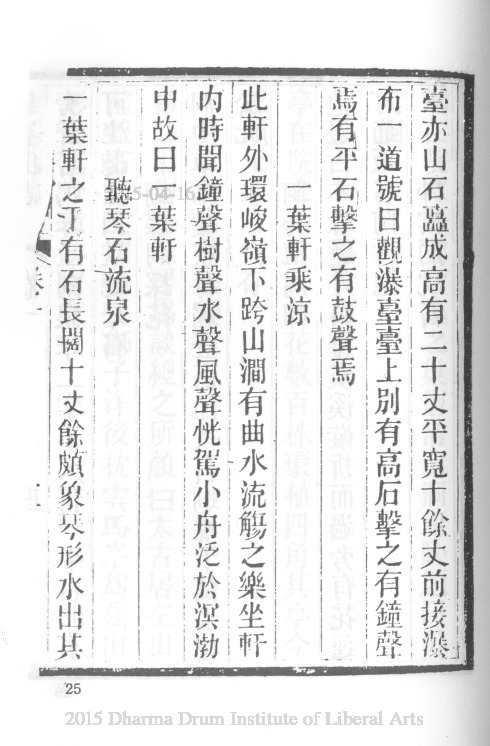 臺亦山石矗成高有二十丈平寬十餘丈前接瀑
布 道號曰觀瀑臺臺上別有高石擊之有鐘聲
焉有平石擊之有鼓聲焉
一葉軒乘涼
此軒外環峻嶺下跨山澗有曲水流觴之樂坐軒
內時聞鐘聲樹聲水聲風聲恍駕小舟泛於溟渤
中故曰一葉軒
聽琴石流泉
一葉軒之下有石長闊十丈餘頗象琴形水出其
卷一
25
2015 Dharma Drum Institute of Liberal Arts